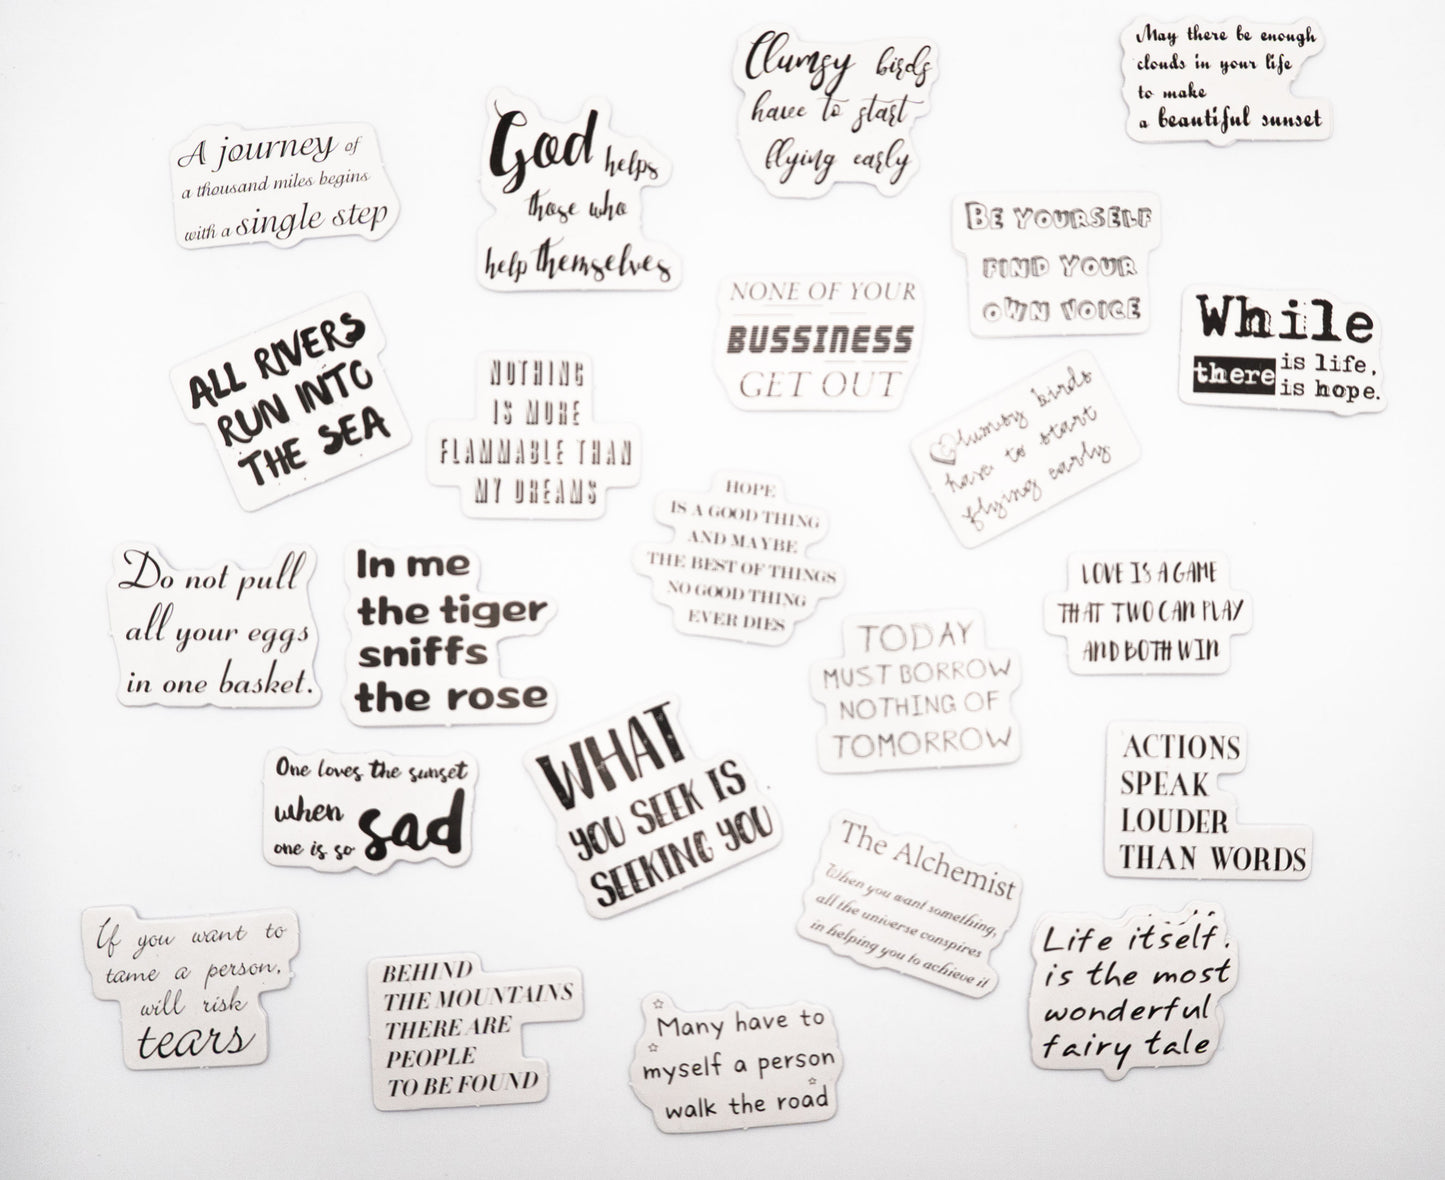 May there be enough
clouds in your life
to make
a beautiful sunset
Clumsy birds
have to start
flying early
God helps
those who
help themselves
A journey of
a thousand miles begins
with a single step
BE YOURSELF
FIND YOUR
OWN VOICE
NONE OF YOUR
BUSSINESS
GET OUT
While
there is life,
is hope.
ALL RIVERS
RUN INTO
THE SEA
NOTHING
IS MORE
FLAMMABLE THAN
MY DREAMS
Clumsy birds
have to start
flying early
HOPE
IS A GOOD THING
AND MAYBE
THE BEST OF THINGS
NO GOOD THING
EVER DIES
Do not pull
all your eggs
in one basket.
In me
the tiger
sniffs
the rose
LOVE IS A GAME
THAT TWO CAN PLAY
AND BOTH WIN
TODAY
MUST BORROW
NOTHING OF
TOMORROW
One loves the sunset
when
one is so sad
WHAT
YOU SEEK IS
SEEKING YOU
ACTIONS
SPEAK
LOUDER
THAN WORDS
The Alchemist
When you want something,
all the universe conspires
in helping you to achieve it
If you want to
tame a person,
will risk
tears
BEHIND
THE MOUNTAINS
THERE ARE
PEOPLE
TO BE FOUND
Many have to
myself a person
walk the road
Life itself.
is the most
wonderful
fairy tale